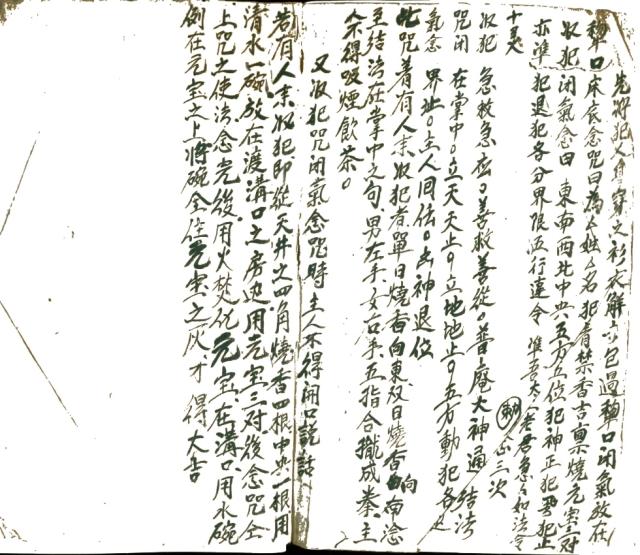 先將犯人身穿之衫衣解上包過犂口閉氣放在
犂口床底念咒曰為厶姓厶名犯有禁香吉稟燒元宝对
收犯閉氣念曰東南西北中央五方五位犯神正犯正
亦準犯退犯各分界限五行速令準吾太上老君急急如法令
念三次
收犯急救急应善救善從普庵大神通結法
咒閉在掌中立天天止立地地止五方動犯各走
氣念界址土人回位凶神退位
此咒着有人來收犯者單日燒香向東双日燒香向南念
至結法在掌中之句男左手女右手五指合職成拳主
人不得吸煙飲茶
又收犯咒閉氣念咒時主人不得開口說話
若有人來收犯即從天井之四角燒香四根中央一根用
清水一碗放在渡溝口之房边用元宝三对後念咒
上咒之使法念完後用火焚化元宝在溝口用水碗
倒在元宝之上將碗全住元宝之灰才得大吉